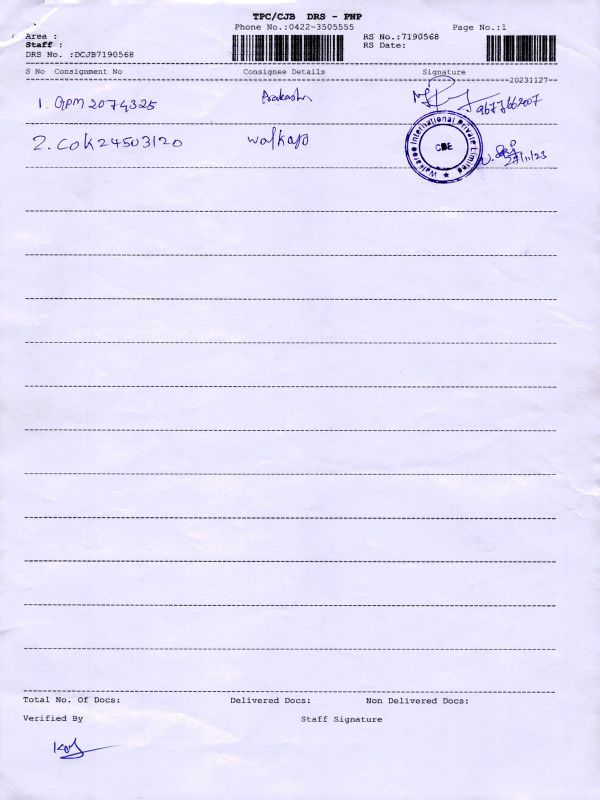 TPC/CJB DRS - PNP
Phone No.:0422-3505555 Page No.:1
Area : RS No.:7190568
Staff : RS Date:
DRS No. :DCJB7190568
S No Consignment No Consignee Details Signature
20231127
1. GPM 2074325 Prakash
2. COK24503120 walkaroo
Walkaroo International Private Limited
CBE
27/11/23
Total No. Of Docs: Delivered Docs: Non Delivered Docs:
Verified By Staff Signature